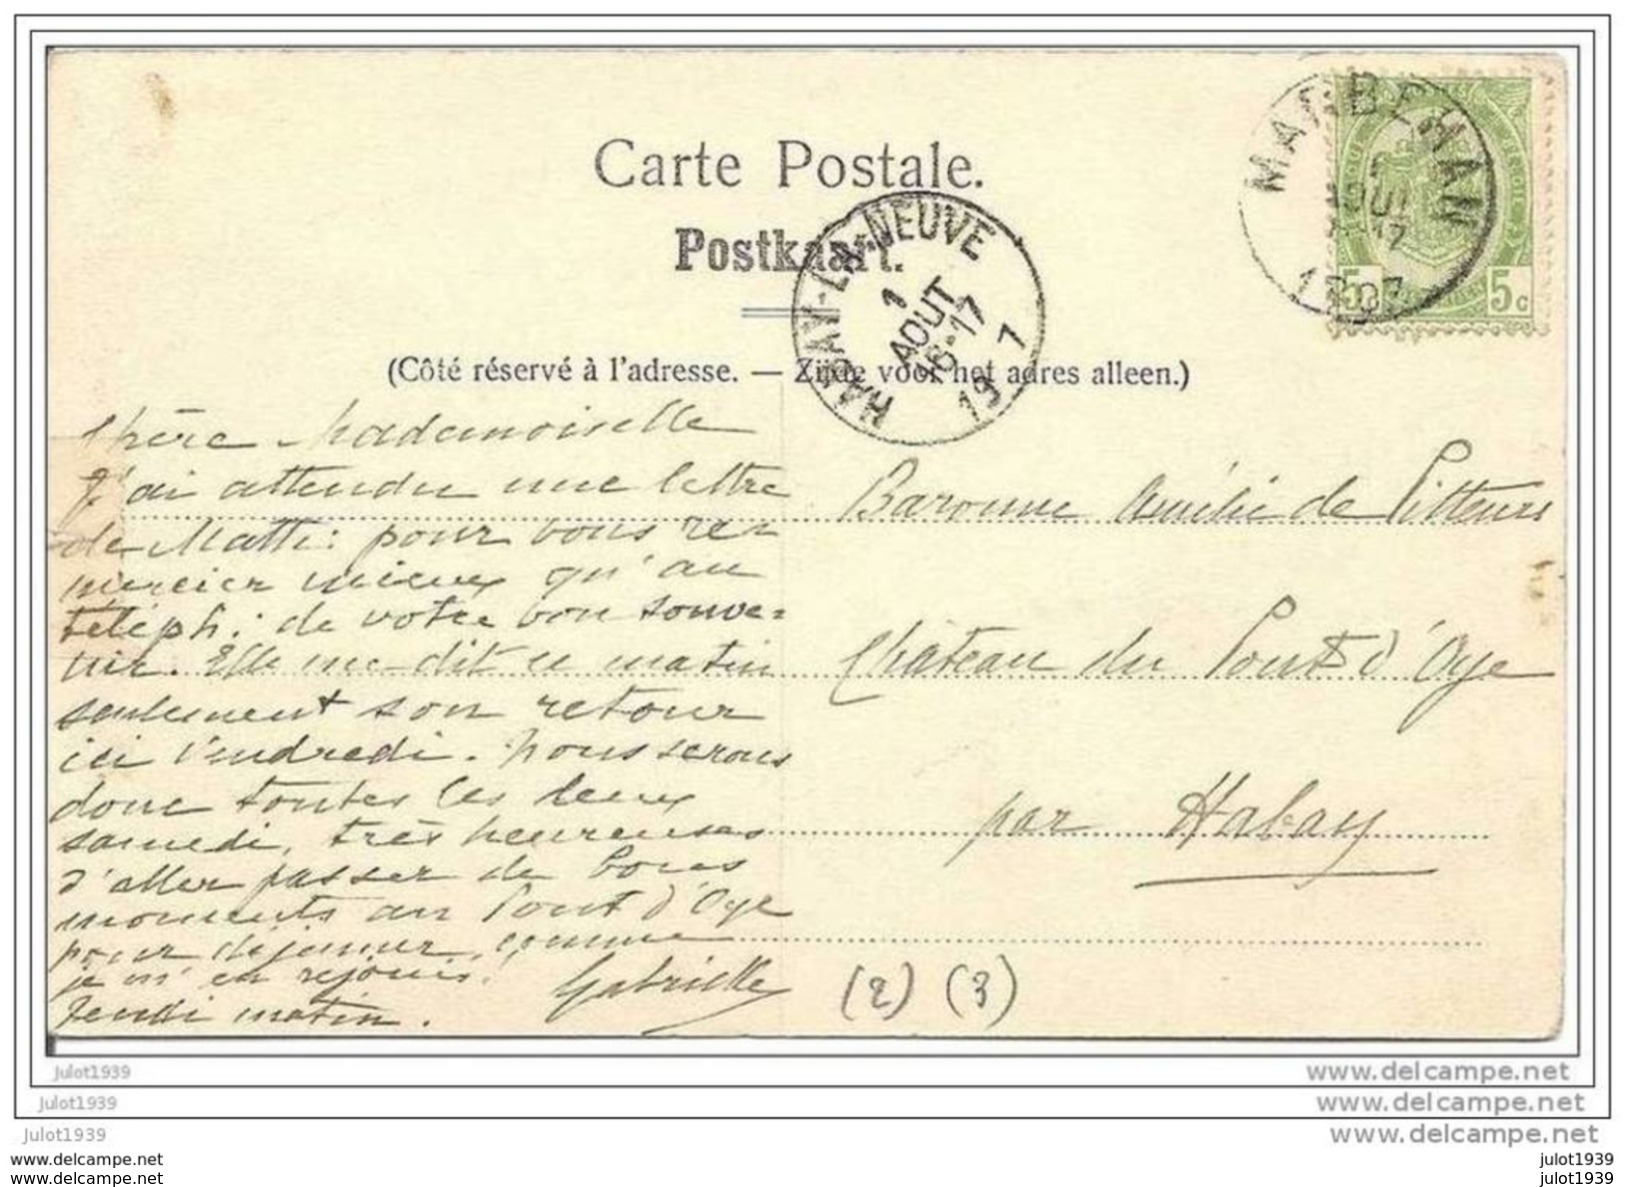 Carte Postale.
Postkaart.
(Côté réservé à l'adresse. — Zijde voor het adres alleen.)
MARBEHAN
AOUT
17
1907
5c 5c
HABAY-LA-NEUVE
1
AOUT
16-17
19 7
Chère Mademoiselle
J'ai attendu une lettre
de Matti: pour vous re=
mercier mieux qu'au
téléph: de votre bon souve=
nir. Elle me dit ce matin
seulement son retour
ici Vendredi. Nous serons
donc toutes les deux
samedi, très heureuses
d'aller passer de bons
moments au Pont d'Oye
pour déjeuner, comme
je m'en réjouis!
Jeudi matin. Gabrielle
Baronne Amélie de Pitteurs
Château du Pont d'Oye
par Habay
(2) (3)
Julot1939
www.delcampe.net
Julot1939
www.delcampe.net
Julot1939
www.delcampe.net
www.delcampe.net
julot1939
www.delcampe.net
julot1939